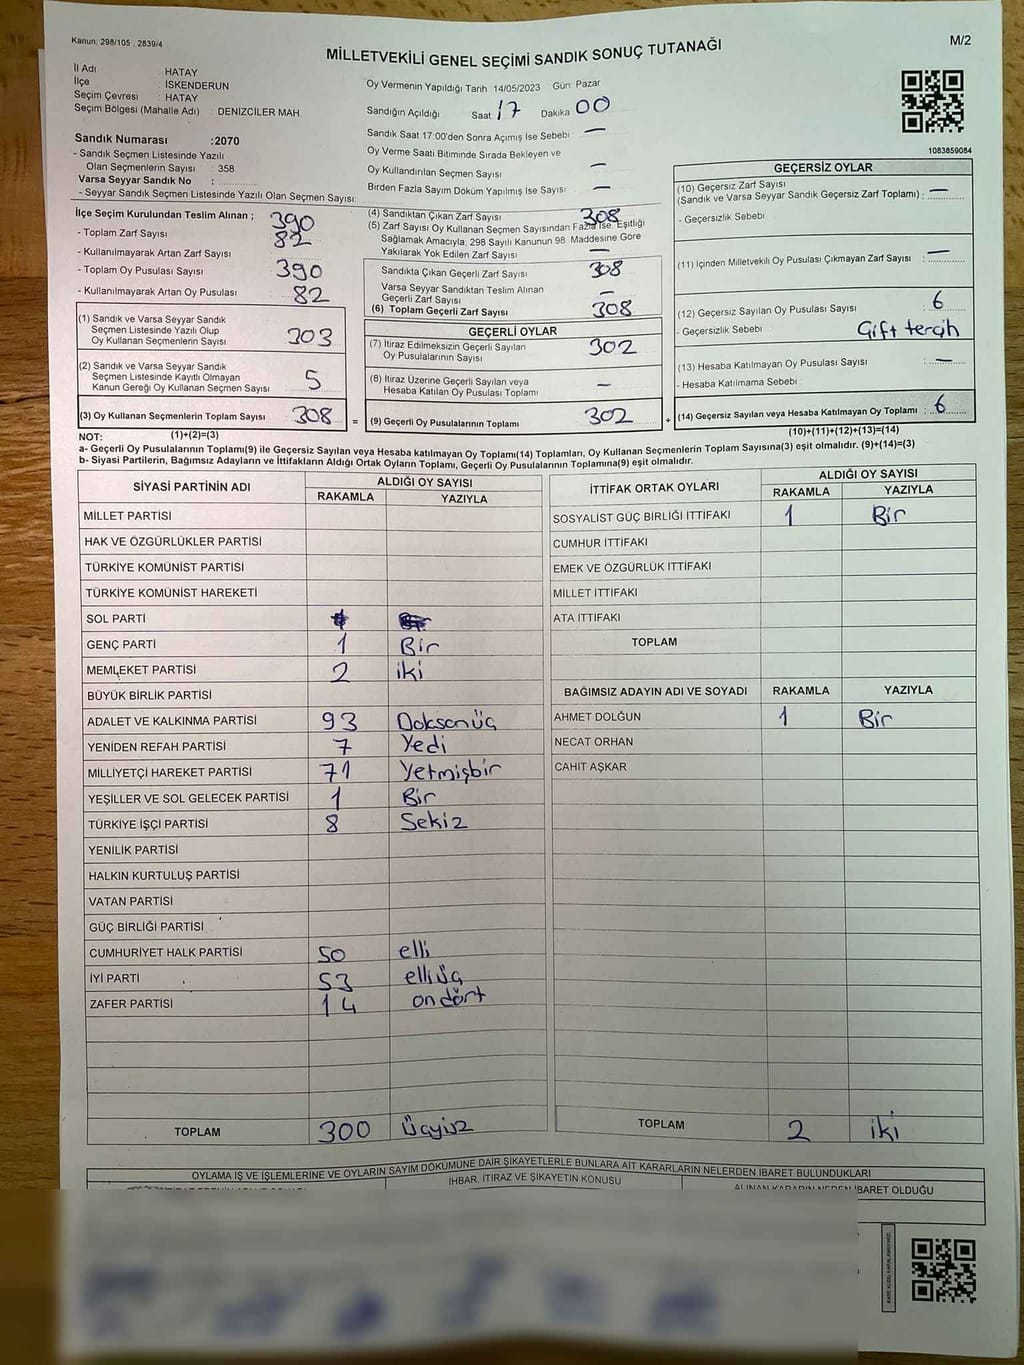 Kanun: 298/105 , 2839/4
MİLLETVEKİLİ GENEL SEÇİMİ SANDIK SONUÇ TUTANAĞI
M/2
İl Adı HATAY
İlçe İSKENDERUN
Seçim Çevresi HATAY
Seçim Bölgesi (Mahalle Adı) : DENİZCİLER MAH
Sandık Numarası :2070
- Sandık Seçmen Listesinde Yazılı
Olan Seçmenlerin Sayısı : 358
Varsa Seyyar Sandık No :
- Seyyar Sandık Seçmen Listesinde Yazılı Olan Seçmen Sayısı:
Oy Vermenin Yapıldığı Tarih 14/05/2023 Gün: Pazar
Sandığın Açıldığı Saat 17 Dakika 00
Sandık Saat 17:00'den Sonra Açımış İse Sebebi : —
Oy Verme Saati Bitiminde Sırada Bekleyen ve
Oy Kullandırılan Seçmen Sayısı : —
Birden Fazla Sayım Döküm Yapılmış İse Sayısı : —
1083859084
İlçe Seçim Kurulundan Teslim Alınan ;
- Toplam Zarf Sayısı : 390
- Kullanılmayarak Artan Zarf Sayısı : 82
- Toplam Oy Pusulası Sayısı : 390
- Kullanılmayarak Artan Oy Pusulası : 82
(1) Sandık ve Varsa Seyyar Sandık
Seçmen Listesinde Yazılı Olup
Oy Kullanan Seçmenlerin Sayısı : 303
(2) Sandık ve Varsa Seyyar Sandık
Seçmen Listesinde Kayıtlı Olmayan
Kanun Gereği Oy Kullanan Seçmen Sayısı : 5
(3) Oy Kullanan Seçmenlerin Toplam Sayısı : 308
(4) Sandıktan Çıkan Zarf Sayısı : 308
(5) Zarf Sayısı Oy Kullanan Seçmen Sayısından Fazla ise, Eşitliği
Sağlamak Amacıyla, 298 Sayılı Kanunun 98. Maddesine Göre
Yakılarak Yok Edilen Zarf Sayısı : —
Sandıkta Çıkan Geçerli Zarf Sayısı : 308
Varsa Seyyar Sandıktan Teslim Alınan
Geçerli Zarf Sayısı : —
(6) Toplam Geçerli Zarf Sayısı : 308
GEÇERLİ OYLAR
(7) İtiraz Edilmeksizin Geçerli Sayılan
Oy Pusulalarının Sayısı : 302
(8) İtiraz Üzerine Geçerli Sayılan veya
Hesaba Katılan Oy Pusulası Toplamı : —
= (9) Geçerli Oy Pusulalarının Toplamı : 302
GEÇERSİZ OYLAR
(10) Geçersiz Zarf Sayısı
(Sandık ve Varsa Seyyar Sandık Geçersiz Zarf Toplamı) : —
- Geçersizlik Sebebi :
(11) İçinden Milletvekili Oy Pusulası Çıkmayan Zarf Sayısı : —
(12) Geçersiz Sayılan Oy Pusulası Sayısı : 6
- Geçersizlik Sebebi : Çift tercih
(13) Hesaba Katılmayan Oy Pusulası Sayısı : —
- Hesaba Katılmama Sebebi :
+ (14) Geçersiz Sayılan veya Hesaba Katılmayan Oy Toplamı : 6
NOT: (1)+(2)=(3)
(10)+(11)+(12)+(13)=(14)
a- Geçerli Oy Pusulalarının Toplamı(9) ile Geçersiz Sayılan veya Hesaba katılmayan Oy Toplamı(14) Toplamları, Oy Kullanan Seçmenlerin Toplam Sayısına(3) eşit olmalıdır. (9)+(14)=(3)
b- Siyasi Partilerin, Bağımsız Adayların ve İttifakların Aldığı Ortak Oyların Toplamı, Geçerli Oy Pusulalarının Toplamına(9) eşit olmalıdır.
SİYASİ PARTİNİN ADI ALDIĞI OY SAYISI
RAKAMLA YAZIYLA
MİLLET PARTİSİ
HAK VE ÖZGÜRLÜKLER PARTİSİ
TÜRKİYE KOMÜNİST PARTİSİ
TÜRKİYE KOMÜNİST HAREKETİ
SOL PARTİ
GENÇ PARTİ 1 Bir
MEMLEKET PARTİSİ 2 iki
BÜYÜK BİRLİK PARTİSİ
ADALET VE KALKINMA PARTİSİ 93 Doksanüç
YENİDEN REFAH PARTİSİ 7 Yedi
MİLLİYETÇİ HAREKET PARTİSİ 71 Yetmişbir
YEŞİLLER VE SOL GELECEK PARTİSİ 1 Bir
TÜRKİYE İŞÇİ PARTİSİ 8 Sekiz
YENİLİK PARTİSİ
HALKIN KURTULUŞ PARTİSİ
VATAN PARTİSİ
GÜÇ BİRLİĞİ PARTİSİ
CUMHURİYET HALK PARTİSİ 50 elli
İYİ PARTİ 53 elliüç
ZAFER PARTİSİ 14 ondört
TOPLAM 300 Üçyüz
İTTİFAK ORTAK OYLARI ALDIĞI OY SAYISI
RAKAMLA YAZIYLA
SOSYALİST GÜÇ BİRLİĞİ İTTİFAKI 1 Bir
CUMHUR İTTİFAKI
EMEK VE ÖZGÜRLÜK İTTİFAKI
MİLLET İTTİFAKI
ATA İTTİFAKI
TOPLAM
BAĞIMSIZ ADAYIN ADI VE SOYADI RAKAMLA YAZIYLA
AHMET DOLĞUN 1 Bir
NECAT ORHAN
CAHİT AŞKAR
TOPLAM 2 iki
OYLAMA İŞ VE İŞLEMLERİNE VE OYLARIN SAYIM DÖKÜMÜNE DAİR ŞİKAYETLERLE BUNLARA AİT KARARLARIN NELERDEN İBARET BULUNDUKLARI
İHBAR, İTİRAZ VE ŞİKAYETİN KONUSU
ALINAN KARARIN NEDEN İBARET OLDUĞU